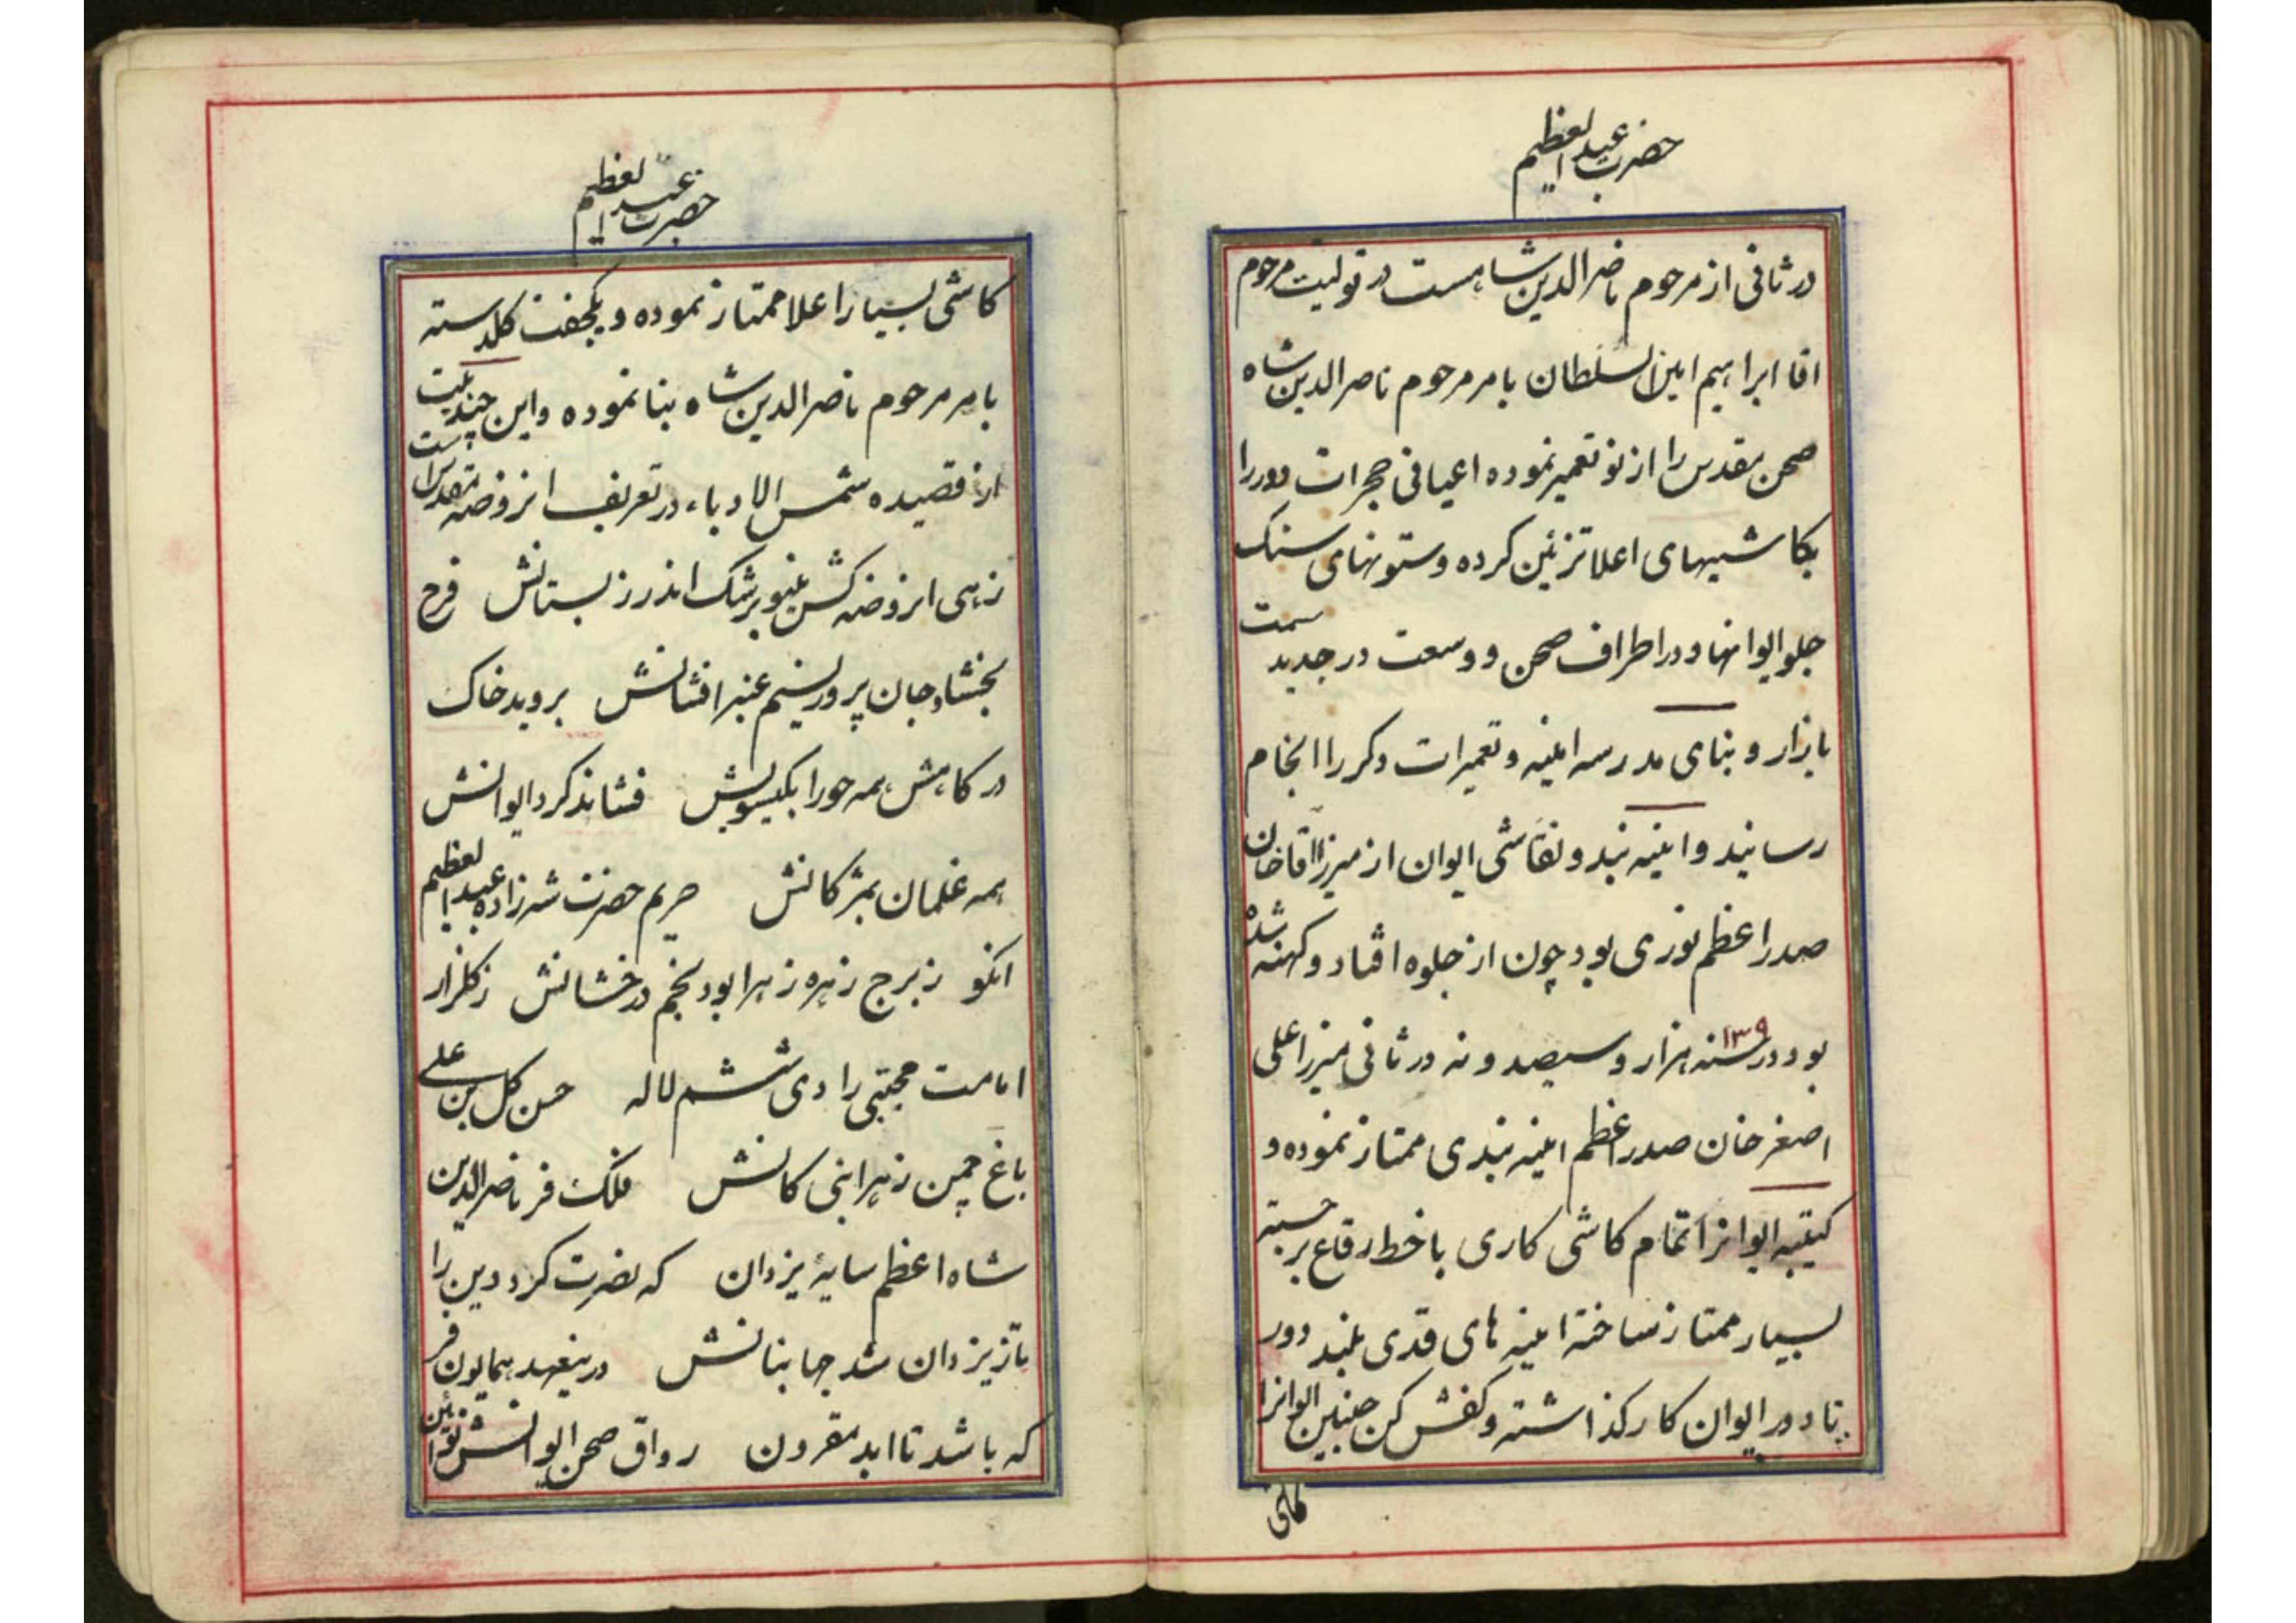 حضرت عبدالعظیم
در ثانی از مرحوم ناصرالدین شاه است در تولیت مرحوم
اقا ابراهیم امین السلطان بامر مرحوم ناصرالدین شاه
صحن مقدس را از نو تعمیر نموده اعیانی حجرات دور را
بکاشیهای اعلا تزئین کرده و ستونهای سنک
جلو ایوانها و در اطراف صحن و وسعت در جدید سمت
بازار و بنای مدرسه امینیه و تعمیرات دکر را انجام
رسانید و اینه بند و نقاشی ایوان از میرزا اقا خان
صدر اعظم نوری بود چون از جلوه افتاد و کهنه شده
بود در سنه ۱۳۰۹ هزار و سیصد و نه در ثانی میرزا علی
اصغر خان صدر اعظم اینه بندی ممتاز نموده و
کتیبه ایوانرا تمام کاشی کاری با خط رقاع برجسته
بسیار ممتاز ساخته اینه های قدی بلند دور
تا دور ایوان کار گذاشته و کفش کن جنبین ایوانرا
کاشی
حضرت عبدالعظیم
کاشی بسیار اعلا ممتاز نموده و یکجفت کلدسته
بامر مرحوم ناصرالدین شاه بنا نموده و این چند بیت
از قصیده شمس الادباء در تعریف انروضه مقدس است
زهی انروضه کش مینو برشک اندر ز بستانش فرح
بخشا و جان پرور نسیم عنبر افشانش بروبد خاک
درکاهش همه حورا بکیسویش فشاند کرد ایوانش
همه غلمان بمژکانش حریم حضرت شهزاده عبدالعظیم
انکو ز برج زهره زهرا بود نجم درخشانش ز کلزار
امامت مجتبی را دی ششم لاله حسن کل بن علی
باغ چمن زهرا بنی کانش فلک فر ناصرالدین
شاه اعظم سایهٔ یزدان که نصرت کرد دین را
تا ز یزدان شد جهابنانش در ینعهد همایون فر
که باشد تا ابد مقرون رواق صحن ایوانش نوائین